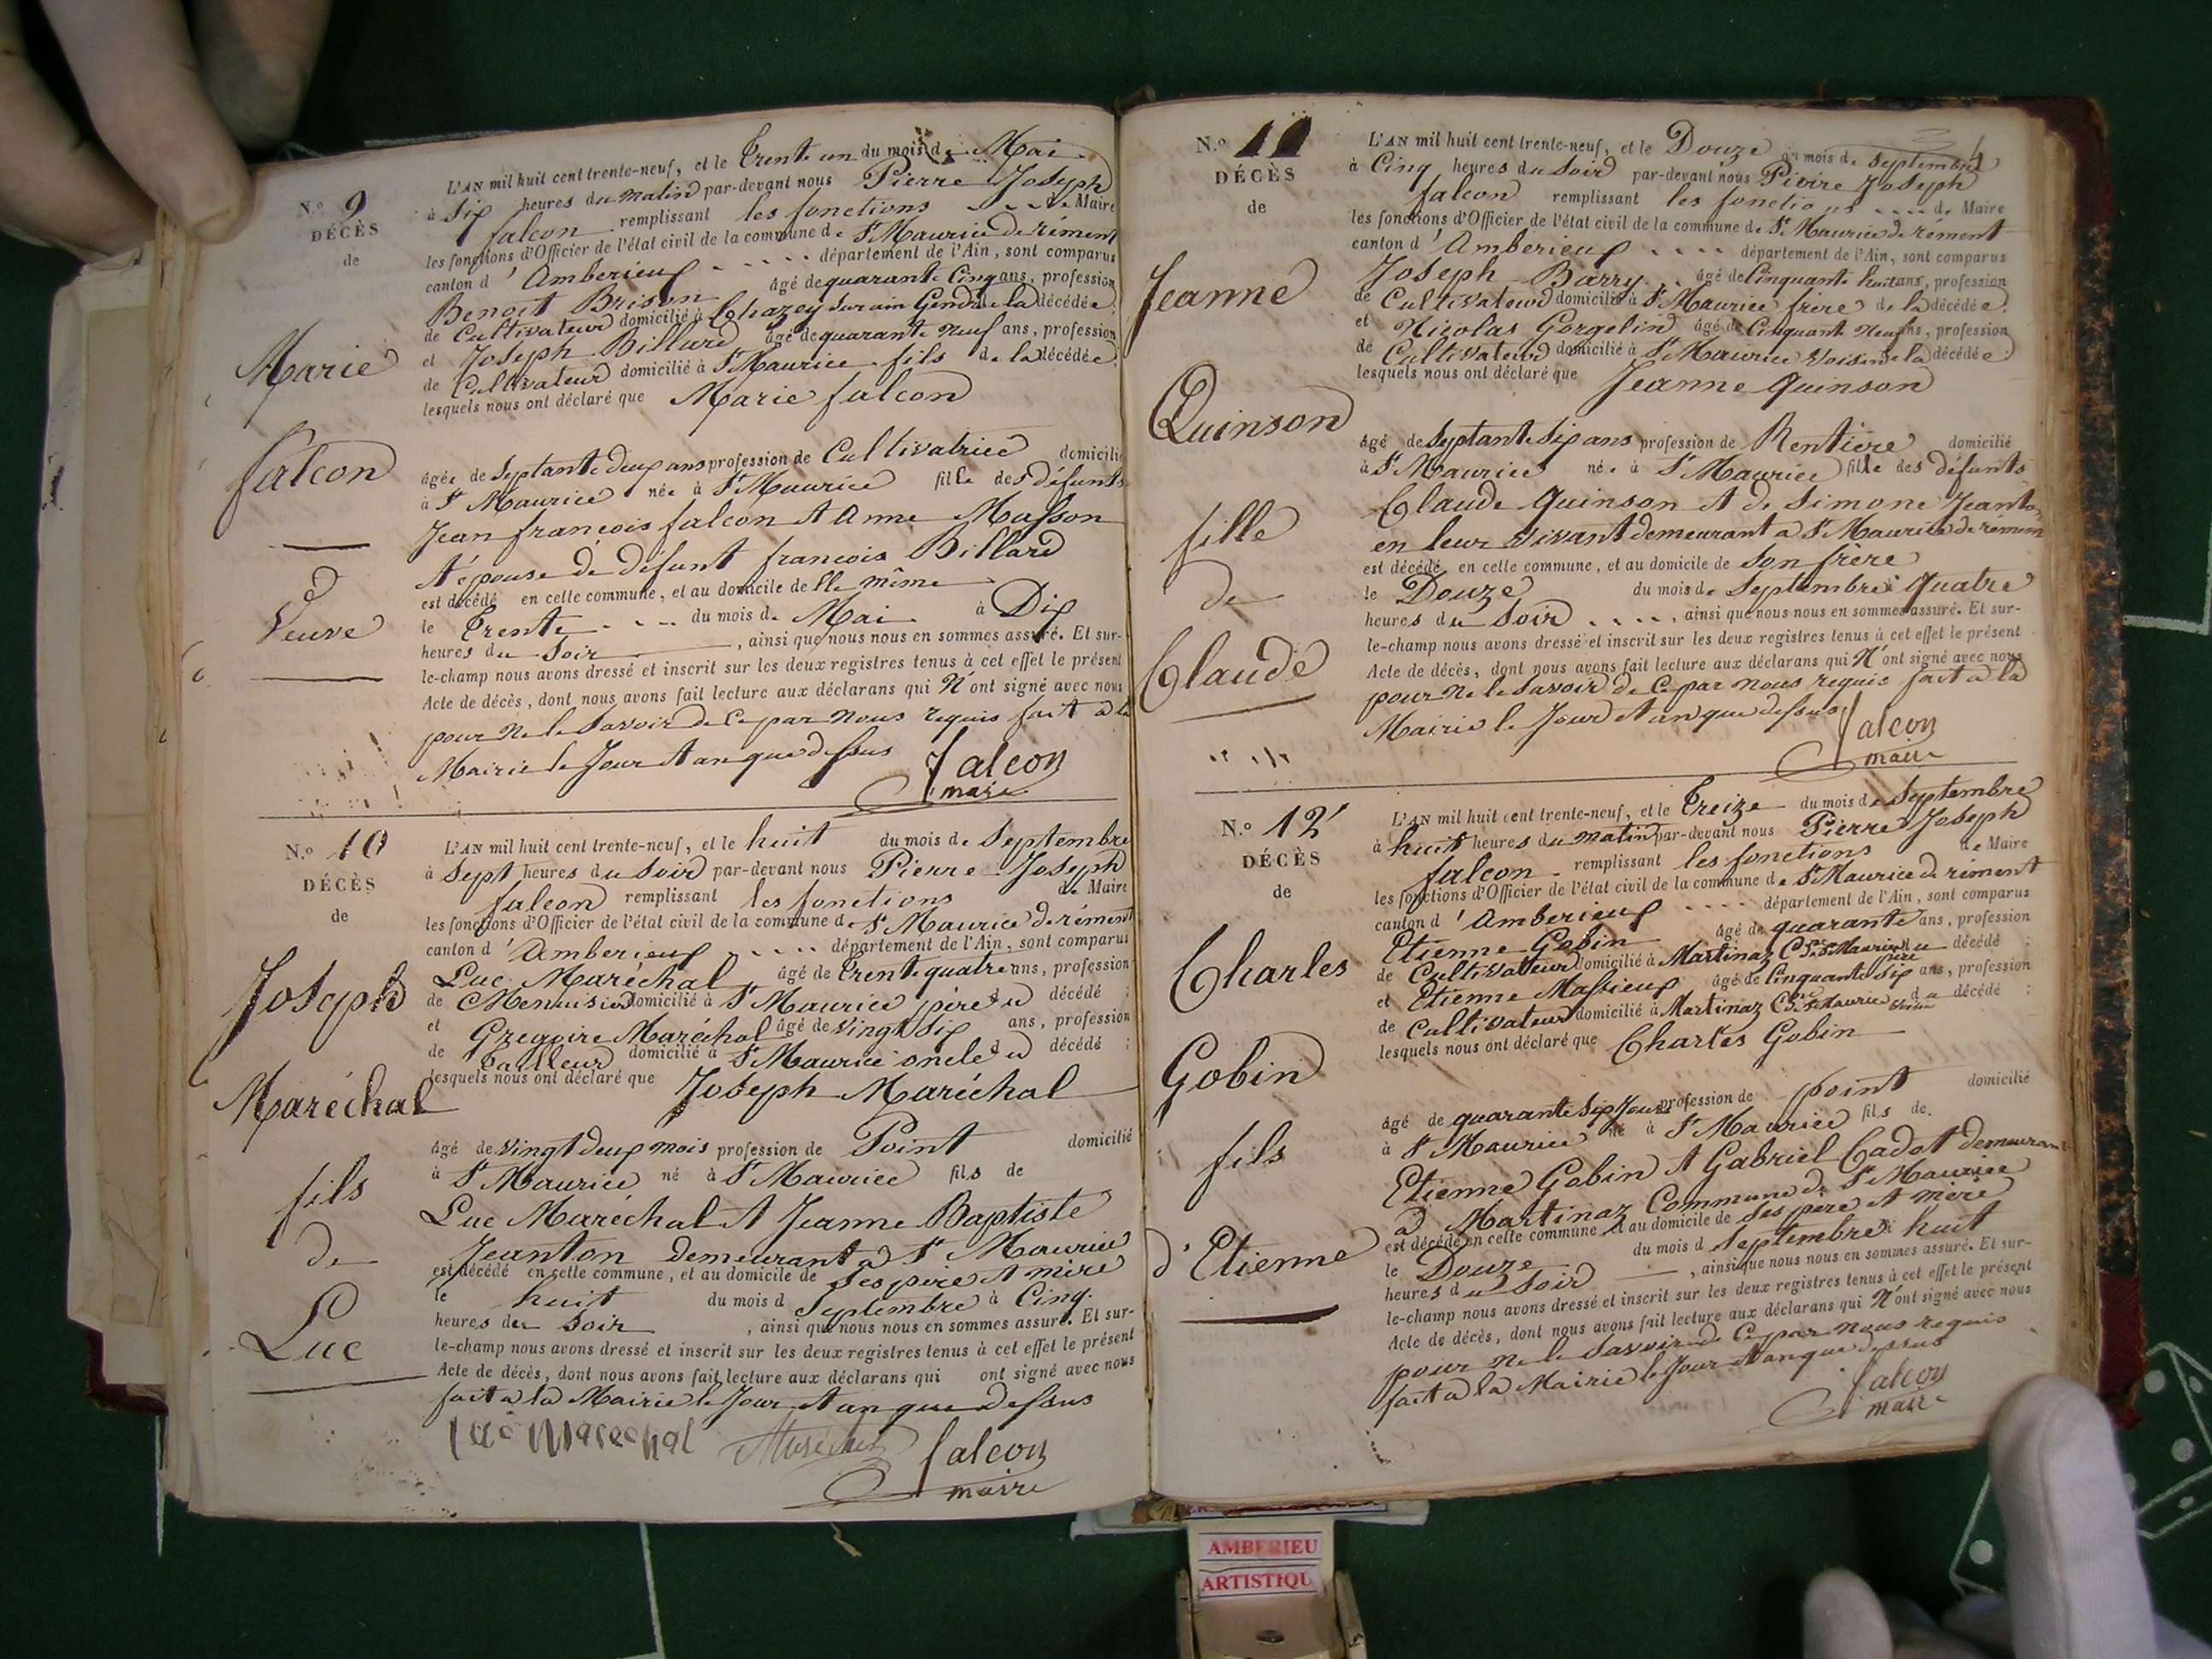 N.° 9
DÉCÈS
de
Marie
falcon
Veuve
L'AN mil huit cent trente-neuf, et le Trente un du mois de Mai
à Six heures du Matin par-devant nous Pierre Joseph
falcon remplissant les fonctions de Maire
les fonctions d'Officier de l'état civil de la commune de St Maurice de rément
canton d'Amberieux département de l'Ain, sont comparus
Benoit Brison âgé de quarante Cinq ans, profession
de Cultivateur domicilié à Chazey Sur ain Gendre de la décédée;
et Joseph Billard âgé de quarante Neuf ans, profession
de Cultivateur domicilié à St Maurice fils de la décédée;
lesquels nous ont déclaré que Marie falcon
âgée de Septante deux ans profession de Cultivatrice domicilié
à St Maurice née à St Maurice fille des défunts
Jean francois falcon et Anne Masson
et épouse de défunt francois Billard
est décédé en cette commune, et au domicile de Elle même
le Trente du mois de Mai à Dix
heures du Soir, ainsi que nous nous en sommes assuré. Et sur-
le-champ nous avons dressé et inscrit sur les deux registres tenus à cet effet le présent
Acte de décès, dont nous avons fait lecture aux déclarans qui N'ont signé avec nous
pour Ne le Savoir de Ce par Nous requis fait a la
Mairie le Jour et an que dessus
falcon
maire
N.° 10
DÉCÈS
de
Joseph
Maréchal
fils
de
Luc
L'AN mil huit cent trente-neuf, et le huit du mois de Septembre
à Sept heures du Soir par-devant nous Pierre Joseph
falcon remplissant les fonctions de Maire
les fonctions d'Officier de l'état civil de la commune de St Maurice de rément
canton d'Amberieux département de l'Ain, sont comparus
Luc Maréchal âgé de Trente quatre ans, profession
de Menuisier domicilié à St Maurice père du décédé;
et Gregoire Maréchal âgé de Vingt Six ans, profession
de Tailleur domicilié à St Maurice oncle du décédé;
lesquels nous ont déclaré que Joseph Maréchal
âgé de Vingt deux mois profession de Point domicilié
à St Maurice né à St Maurice fils de
Luc Maréchal et Jeanne Baptiste
Jeanton demeurant a St Maurice
est décédé en cette commune, et au domicile de Ses père et mère
le huit du mois d Septembre à Cinq
heures du Soir, ainsi que nous nous en sommes assuré. Et sur-
le-champ nous avons dressé et inscrit sur les deux registres tenus à cet effet le présent
Acte de décès, dont nous avons fait lecture aux déclarans qui ont signé avec nous
fait a la Mairie le Jour et an que dessus
Luc Marechal Maréchal falcon
maire
N.° 11
DÉCÈS
de
Jeanne
Quinson
fille
de
Claude
L'AN mil huit cent trente-neuf, et le Douze du mois de Septembre
à Cinq heures du Soir par-devant nous Pierre Joseph
falcon remplissant les fonctions de Maire
les fonctions d'Officier de l'état civil de la commune de St Maurice de rément
canton d'Amberieux département de l'Ain, sont comparus
Joseph Barry âgé de Cinquante huit ans, profession
de Cultivateur domicilié à St Maurice frère de la décédée;
et Nicolas Gorgelin âgé de Cinquante Neuf ans, profession
de Cultivateur domicilié à St Maurice Voisin de la décédée;
lesquels nous ont déclaré que Jeanne Quinson
âgé de Septante Six ans profession de Rentière domicilié
à St Maurice née à St Maurice fille des défunts
Claude Quinson et de Simone Jeanton
en leur Vivant demeurant a St Maurice de rément
est décédé en cette commune, et au domicile de Son frère
le Douze du mois de Septembre à Quatre
heures du Soir, ainsi que nous nous en sommes assuré. Et sur-
le-champ nous avons dressé et inscrit sur les deux registres tenus à cet effet le présent
Acte de décès, dont nous avons fait lecture aux déclarans qui N'ont signé avec nous
pour Ne le Savoir de Ce par Nous requis fait a la
Mairie le Jour et an que dessus
falcon
maire
N.° 12
DÉCÈS
de
Charles
Gobin
fils
d'Etienne
L'AN mil huit cent trente-neuf, et le Treize du mois de Septembre
à huit heures du Matin par-devant nous Pierre Joseph
falcon remplissant les fonctions de Maire
les fonctions d'Officier de l'état civil de la commune de St Maurice de rément
canton d'Amberieux département de l'Ain, sont comparus
Etienne Gobin âgé de quarante ans, profession
de Cultivateur domicilié à Martinaz Cne St Maurice père du décédé;
et Etienne Massieux âgé de Cinquante Six ans, profession
de Cultivateur domicilié à Martinaz Cne St Maurice Voisin du décédé;
lesquels nous ont déclaré que Charles Gobin
âgé de quarante Six Jours profession de point domicilié
à St Maurice né à St Maurice fils de
Etienne Gobin et Gabriel Cadot demeurant
a Martinaz Commune de St Maurice
est décédé en cette commune et au domicile de Ses père et mère
le Douze du mois d Septembre à huit
heures du Soir, ainsi que nous nous en sommes assuré. Et sur-
le-champ nous avons dressé et inscrit sur les deux registres tenus à cet effet le présent
Acte de décès, dont nous avons fait lecture aux déclarans qui N'ont signé avec nous
pour Ne le Savoir de Ce par Nous requis
fait a la Mairie le Jour et an que dessus
falcon
maire
AMBERIEU
ARTISTIQU